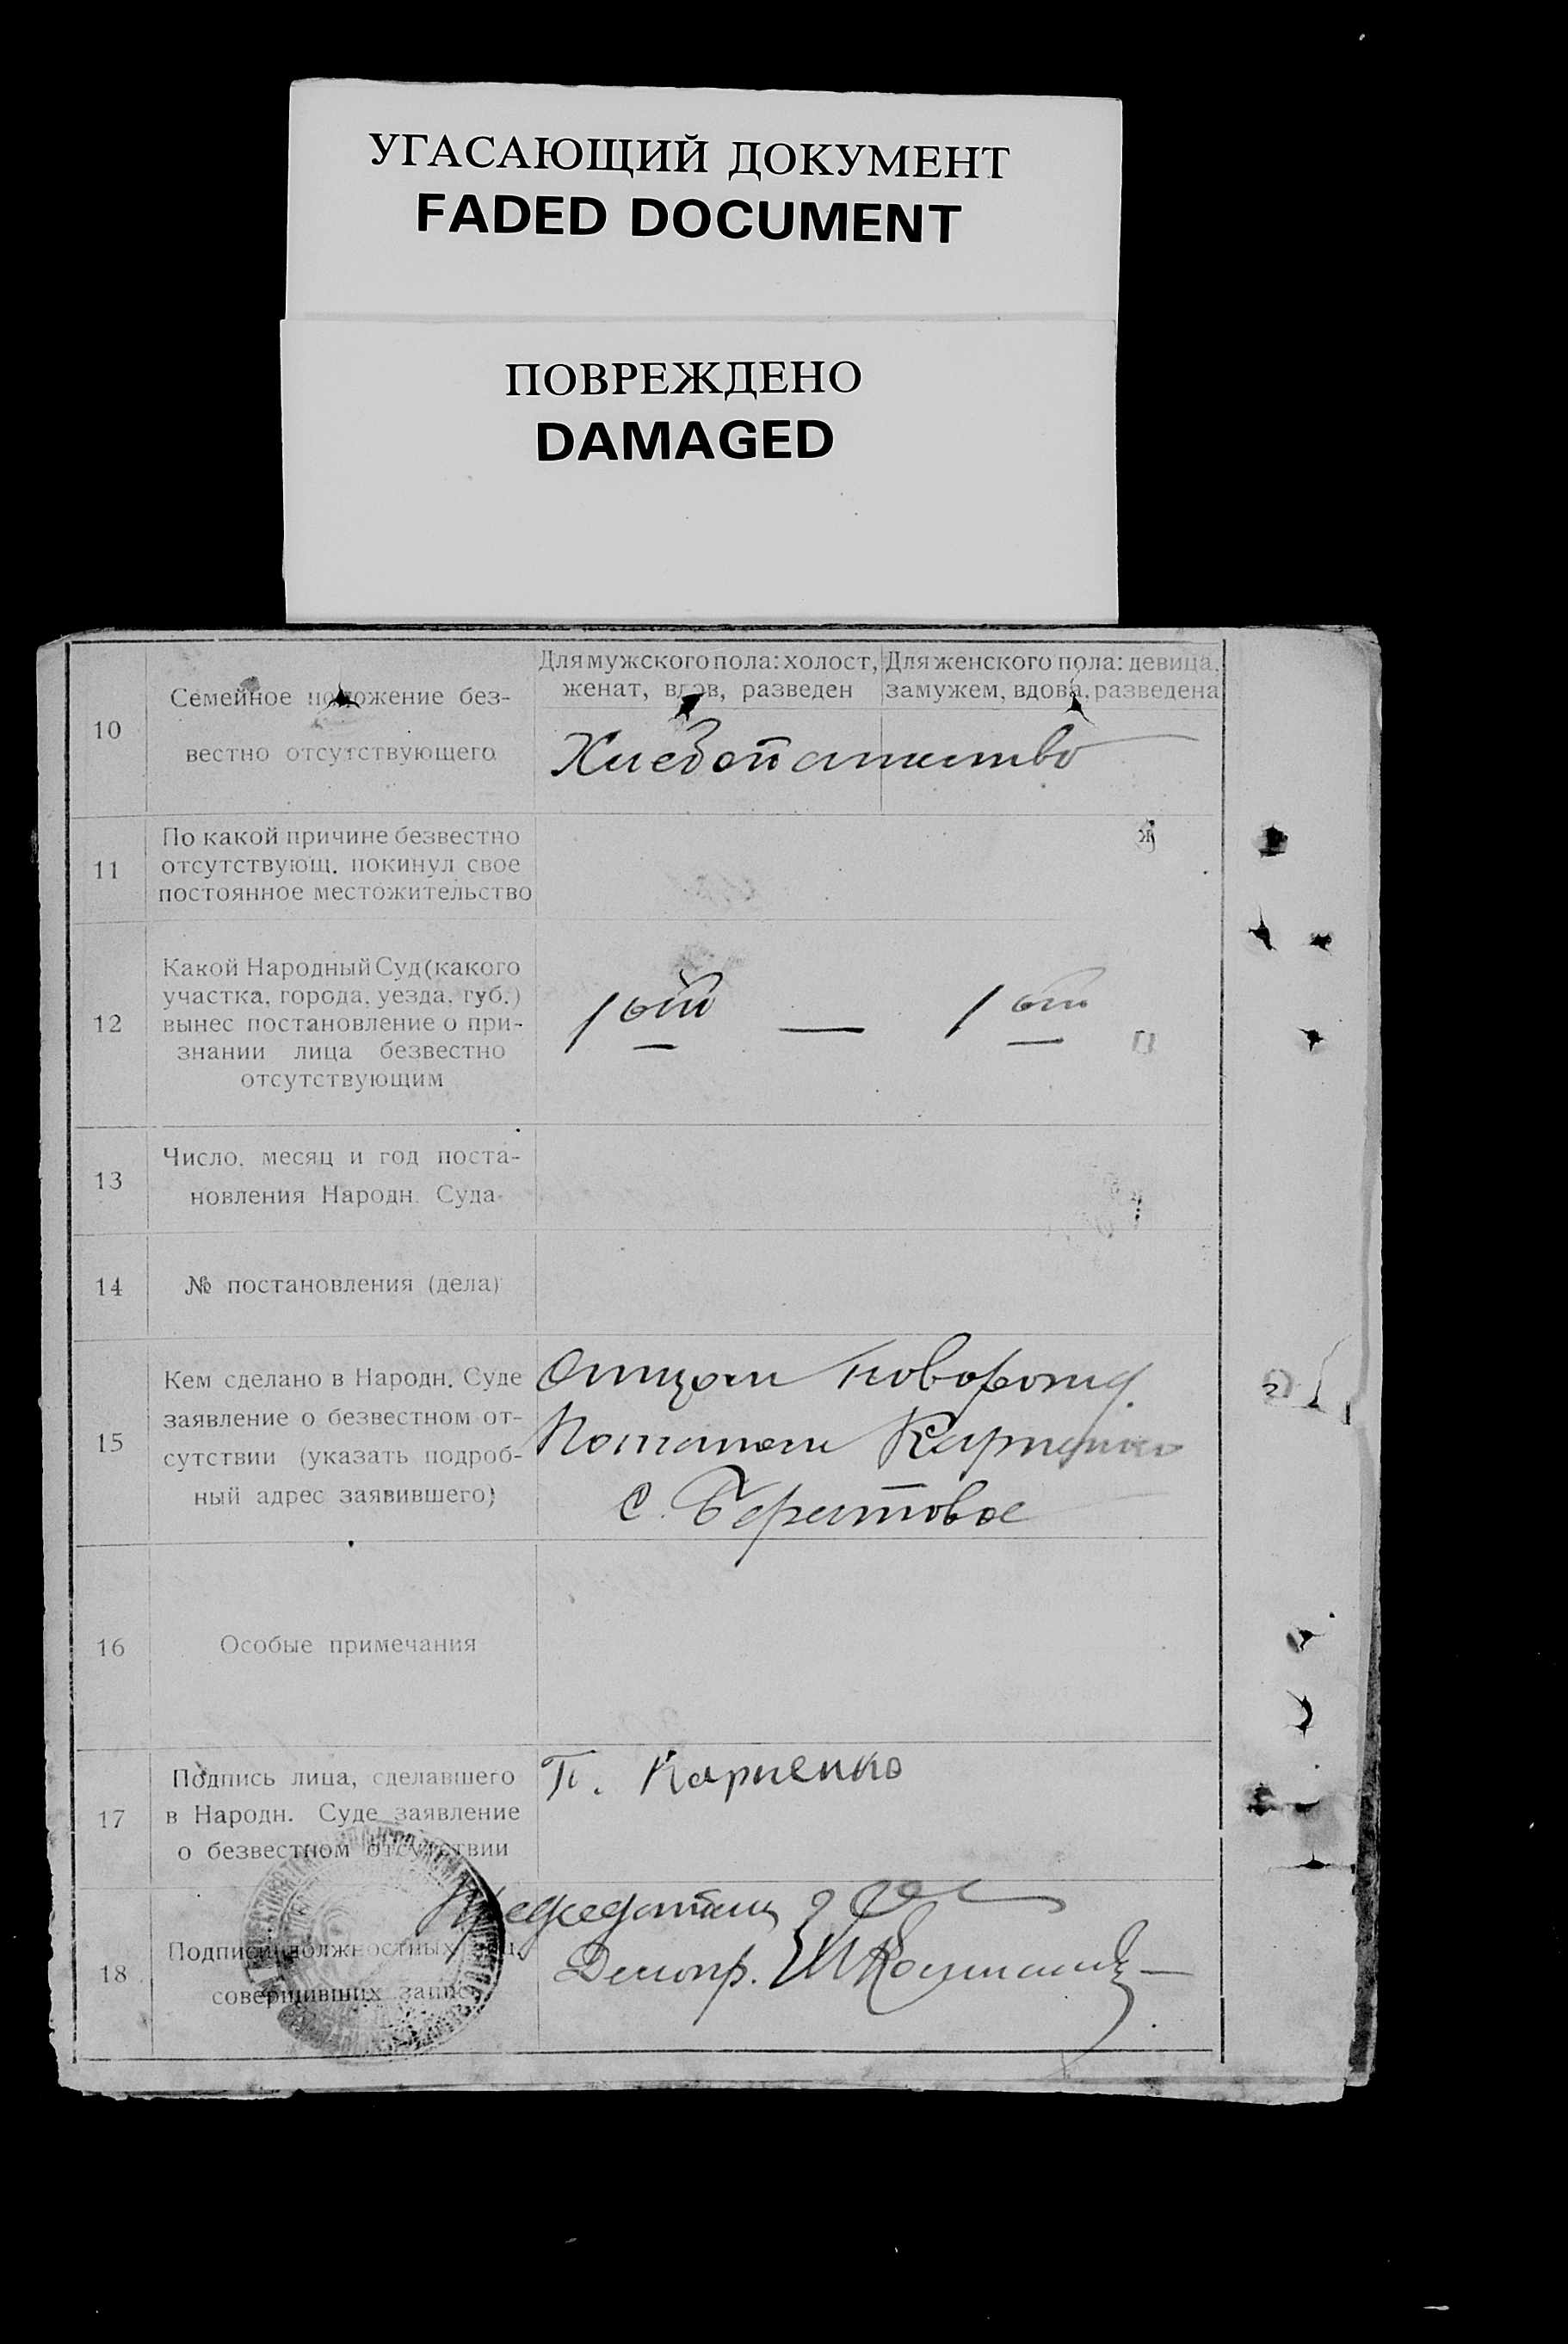 УГАСАЮЩИЙ ДОКУМЕНТ
FADED DOCUMENT
ПОВРЕЖДЕНО
DAMAGED
10
Семейное положение без-
вестно отсутствующего
Для мужского пола: холост,
женат, вдов, разведен
Для женского пола: девица,
замужем, вдова, разведена
Хлебопашество
11
По какой причине безвестно
отсутствующ. покинул свое
постоянное местожительство
12
Какой Народный Суд (какого
участка, города, уезда, губ.)
вынес постановление о при-
знании лица безвестно
отсутствующим
1ый — 1ый
13
Число, месяц и год поста-
новления Народн. Суда
14
№ постановления (дела)
15
Кем сделано в Народн. Суде
заявление о безвестном от-
сутствии (указать подроб-
ный адрес заявившего)
Отцом новорожд.
Потапом Карпенко
с. Берестовое
16
Особые примечания
17
Подпись лица, сделавшего
в Народн. Суде заявление
о безвестном отсутствии
П. Карпенко
18
Подписи должностных лиц,
совершивших запись
Делопр.